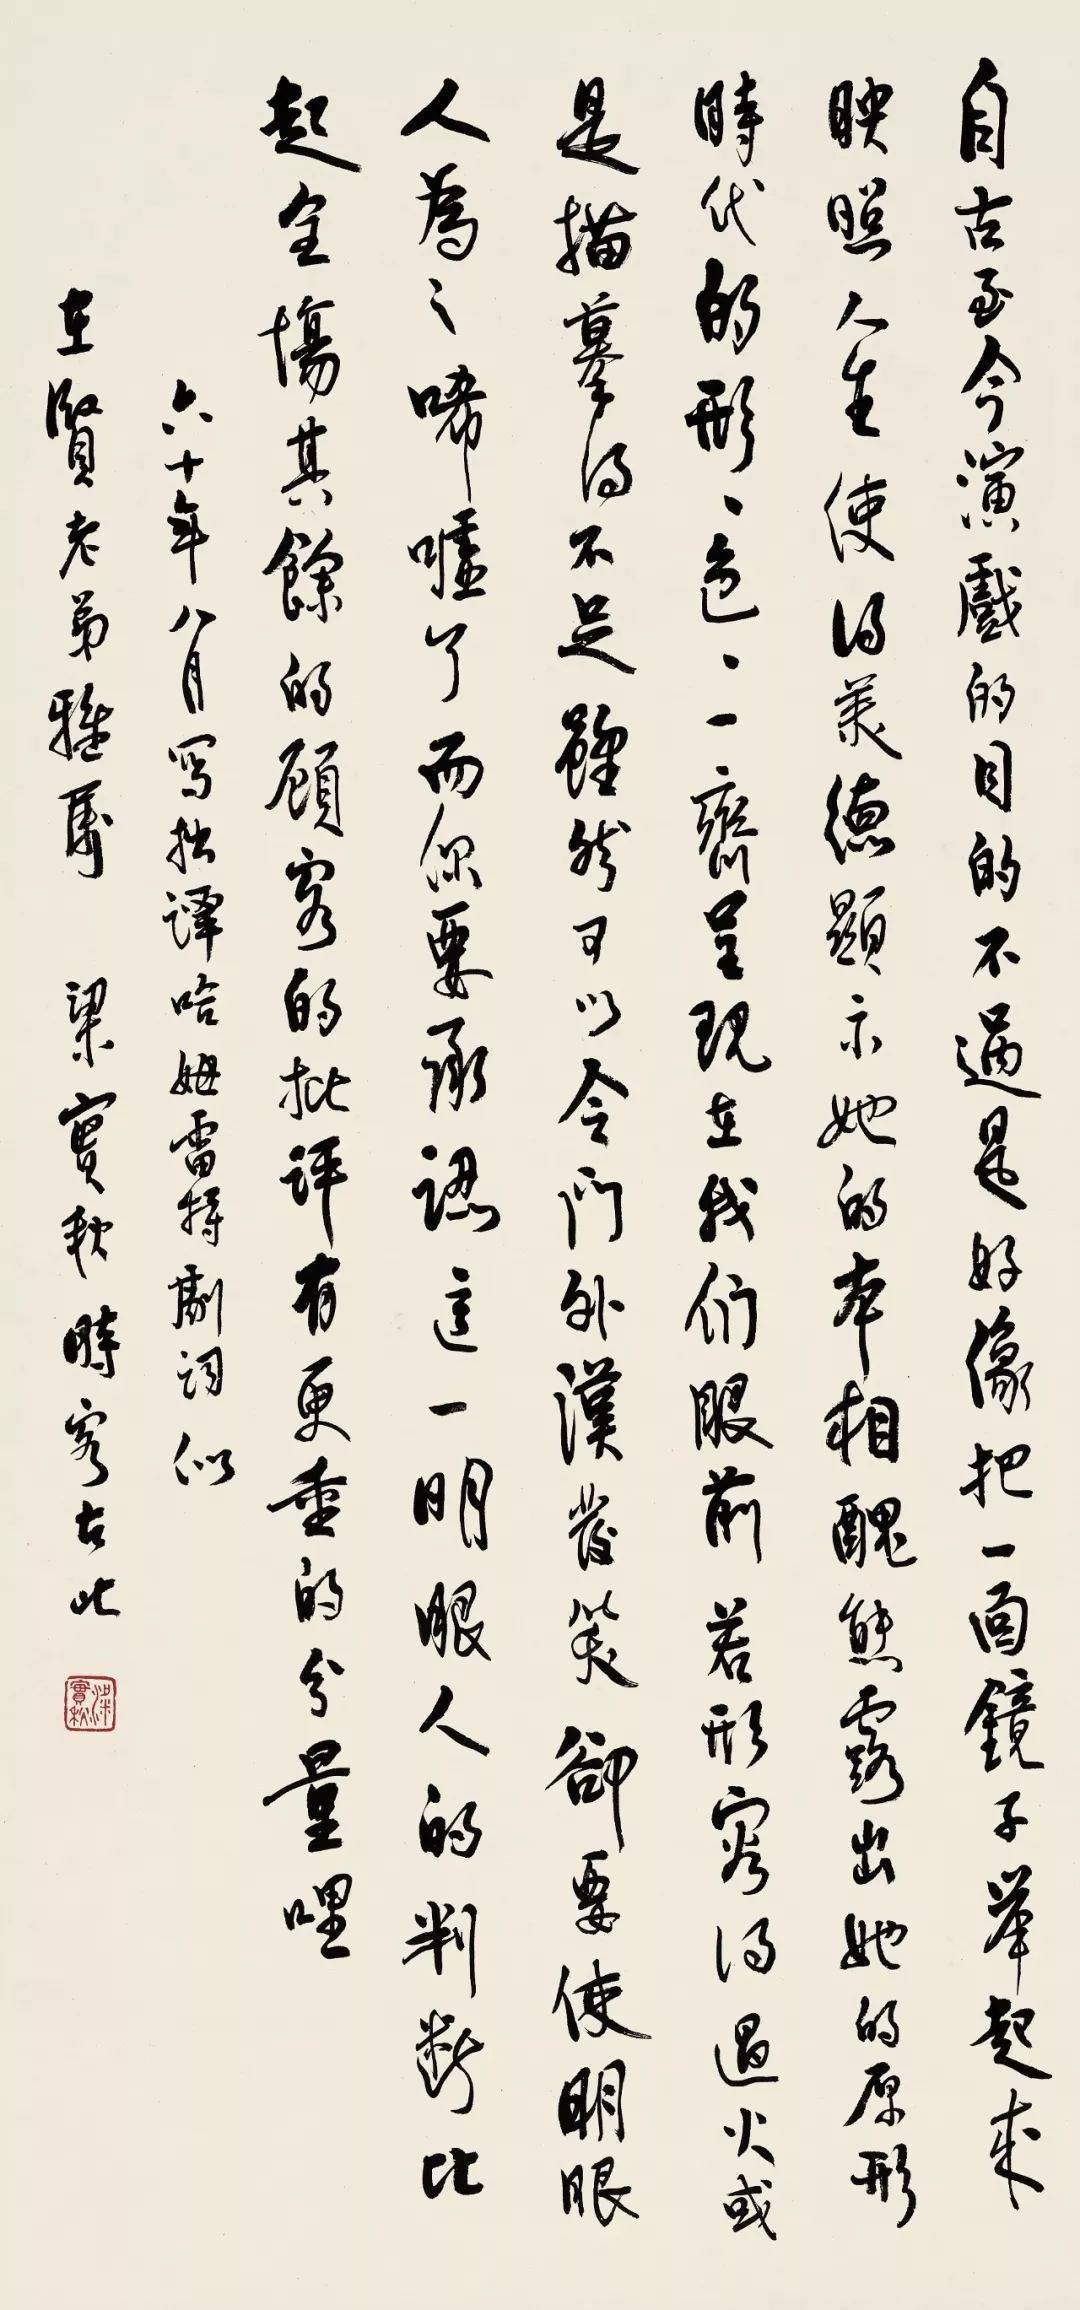 自古至今演戲的目的不過是好像把一面鏡子舉起來
映照人生使得美德顯示她的本相醜態露出她的原形
時代的形形色色一齊呈現在我們眼前若形容得過火或
是描摹得不足雖然可以令門外漢發笑卻要使明眼
人為之唏噓了而你要承認這一明眼人的判斷比
起全場其餘的顧客的批評有更重的分量哩
六十年八月寫拙譯哈姆雷特劇詞似
在賢老弟雅屬 梁實秋時客古此
梁實秋